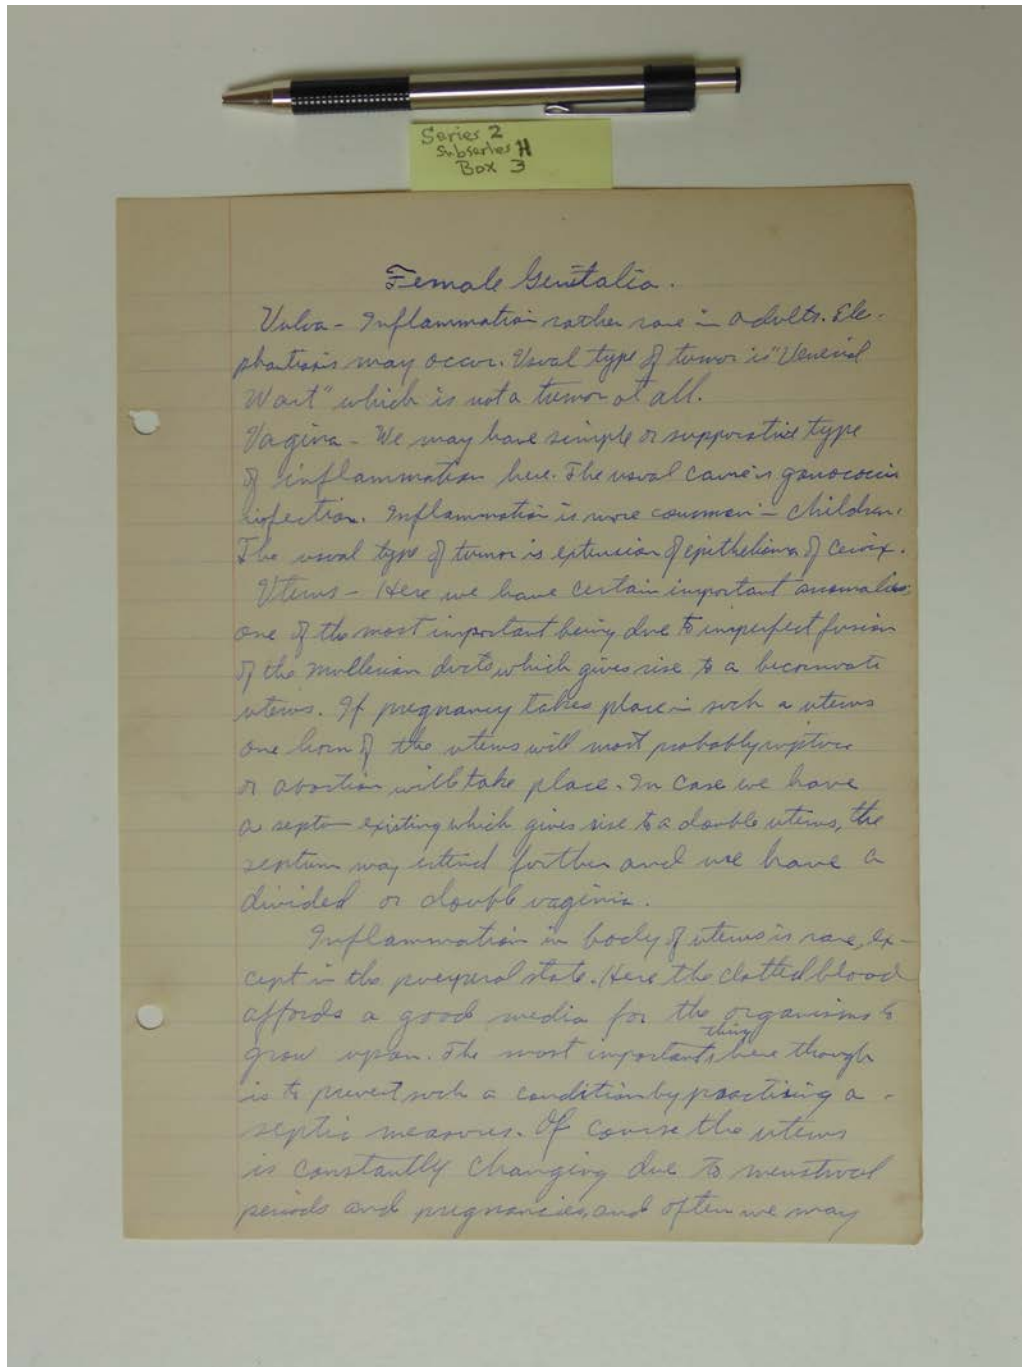 Series 2
Subseries H
Box 3
Female Genitalia.
Vulva - Inflammation rather rare in adults. Ele-
phantiasis may occur. Usual type of tumor is "Venerial
Wart" which is not a tumor at all.
Vagina - We may have simple or suppurative type
of inflammation here. The usual cause is gonococcus
infection. Inflammation is more common in children.
The usual type of tumor is extension of epithelioma of cervix.
Uterus - Here we have certain important anomalies,
one of the most important being due to imperfect fusion
of the mullerian ducts which gives rise to a bicornuate
uterus. If pregnancy takes place in such a uterus
one horn of the uterus will most probably rupture
or abortion will take place. In case we have
a septum existing which gives rise to a double uterus, the
septum may extend further and we have a
divided or double vagina.
Inflammation in body of uterus is rare, ex-
cept in the puerperal state. Here the clotted blood
affords a good media for the organisms to
grow upon. The most important thing here though
is to prevent such a condition by practising a-
septic measures. Of course the uterus
is constantly changing due to menstrual
periods and pregnancies, and often we may